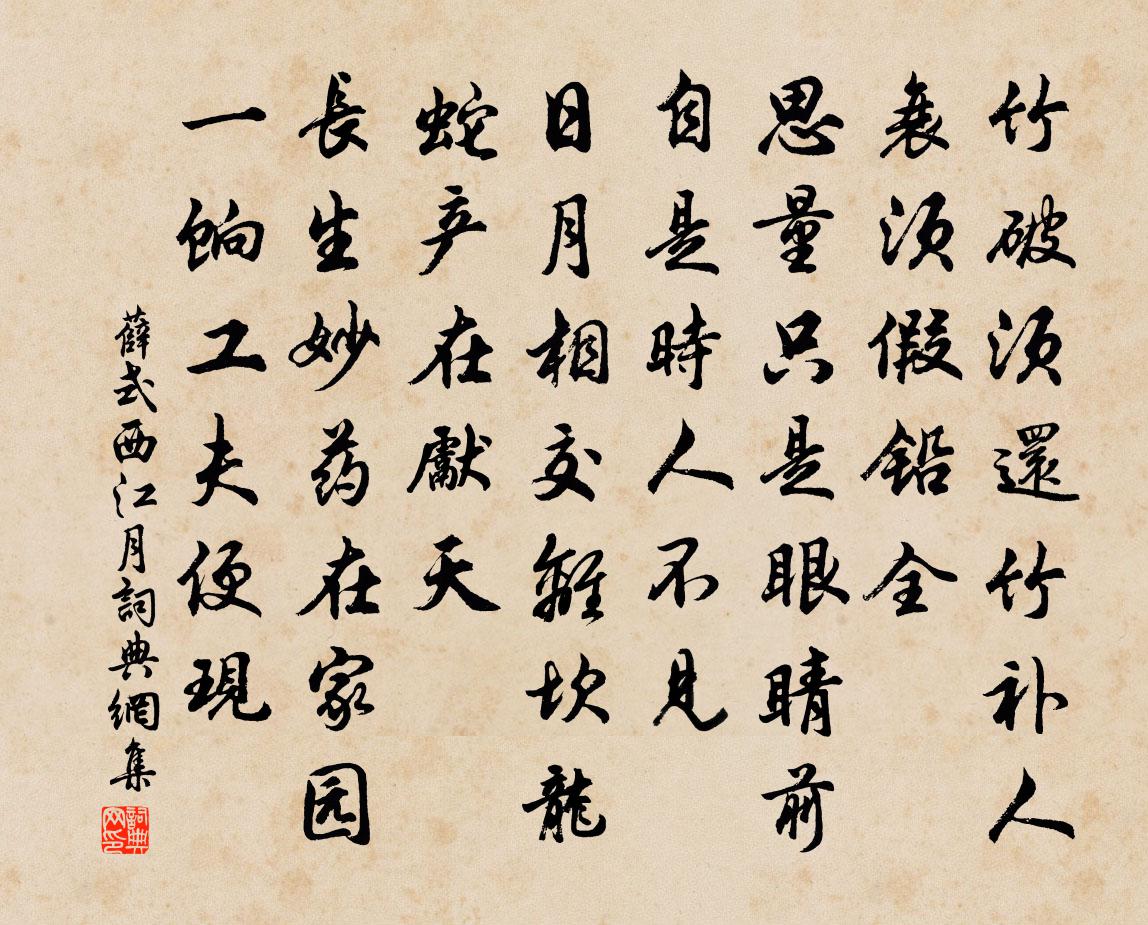 竹破须還竹补人
衰须假铅全
思量只是眼睛前
自是時人不见
日月相交離坎龍
蛇产在獻天
長生妙药在家园
一饷工夫便現
薛式西江月詞典網集
詞典网印